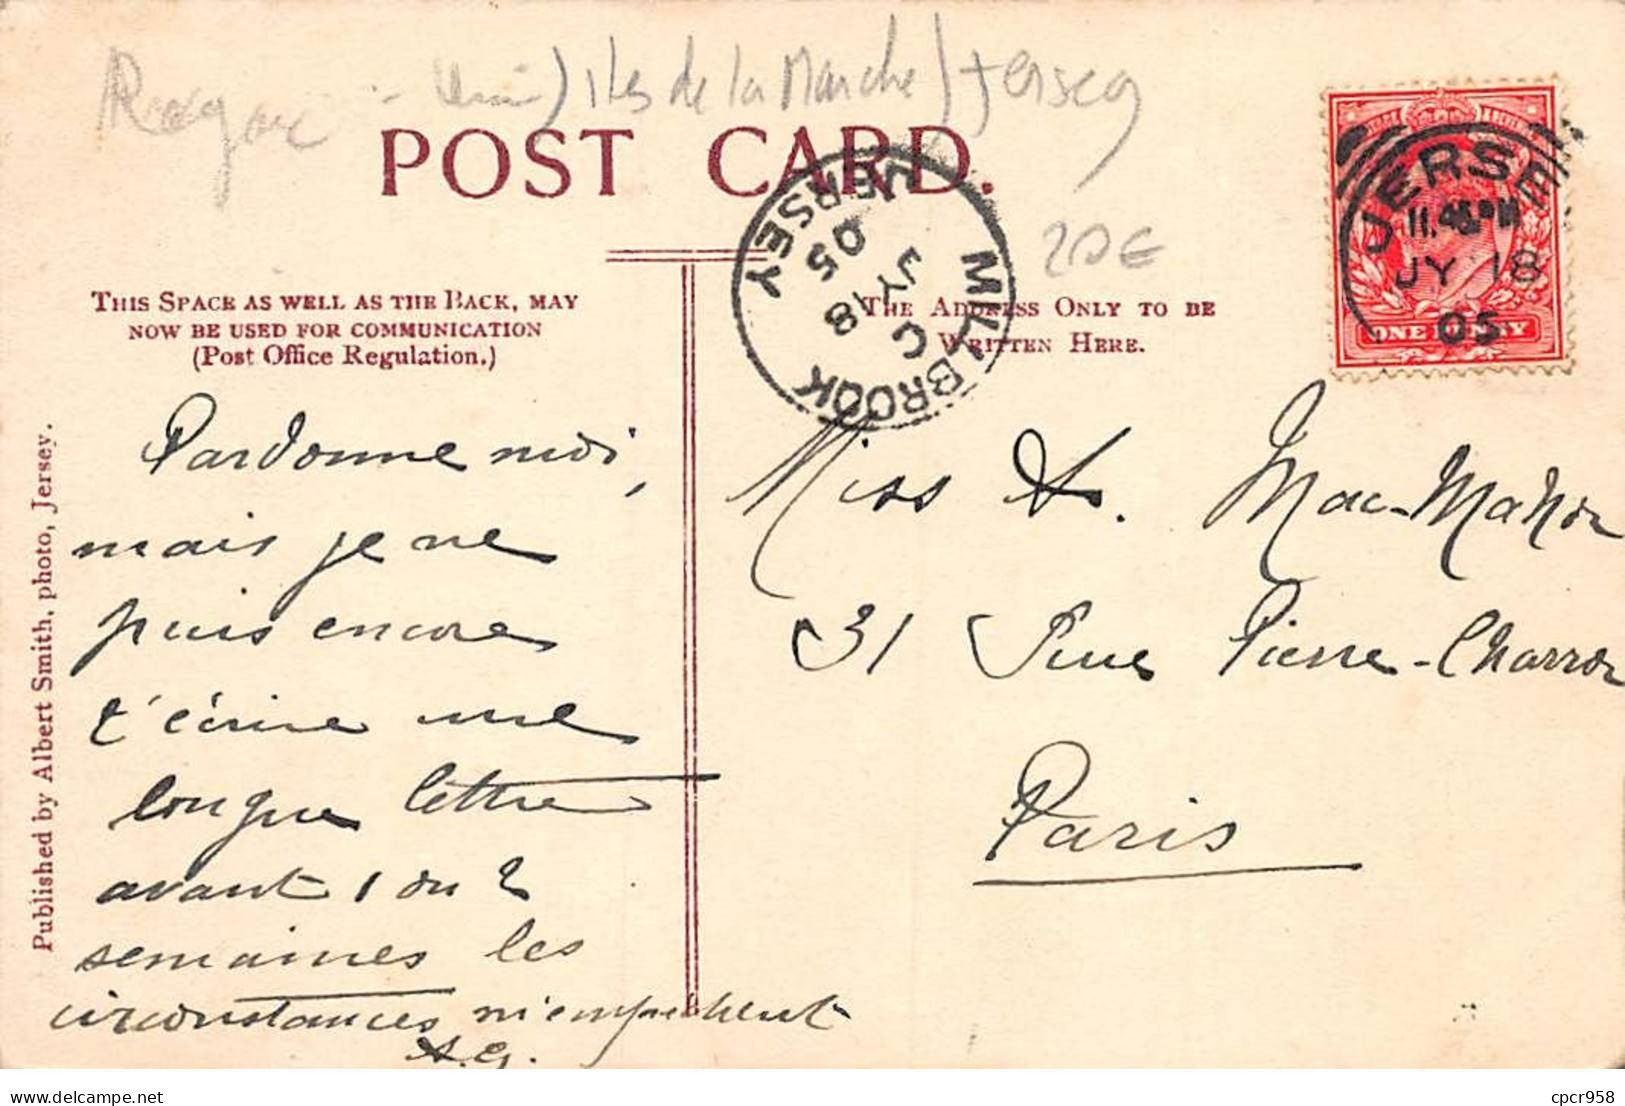 Royaume-Uni) Iles de la Manche) Jersey
POST CARD.
20€
JERSEY
11.45PM
JY 18
05
ONE PENNY
MILLBROOK
JERSEY
C
JY 18
05
THIS SPACE AS WELL AS THE BACK, MAY
NOW BE USED FOR COMMUNICATION
(Post Office Regulation.)
THE ADDRESS ONLY TO BE
WRITTEN HERE.
Pardonne moi,
mais je ne
puis encore
t'écrire une
longue lettre
avant 1 ou 2
semaines les
circonstances m'empêchent
A.G.
Miss A. Mac-Mahon
31 Rue Pierre-Charron
Paris
Published by Albert Smith, photo, Jersey.
www.delcampe.net
cpcr958